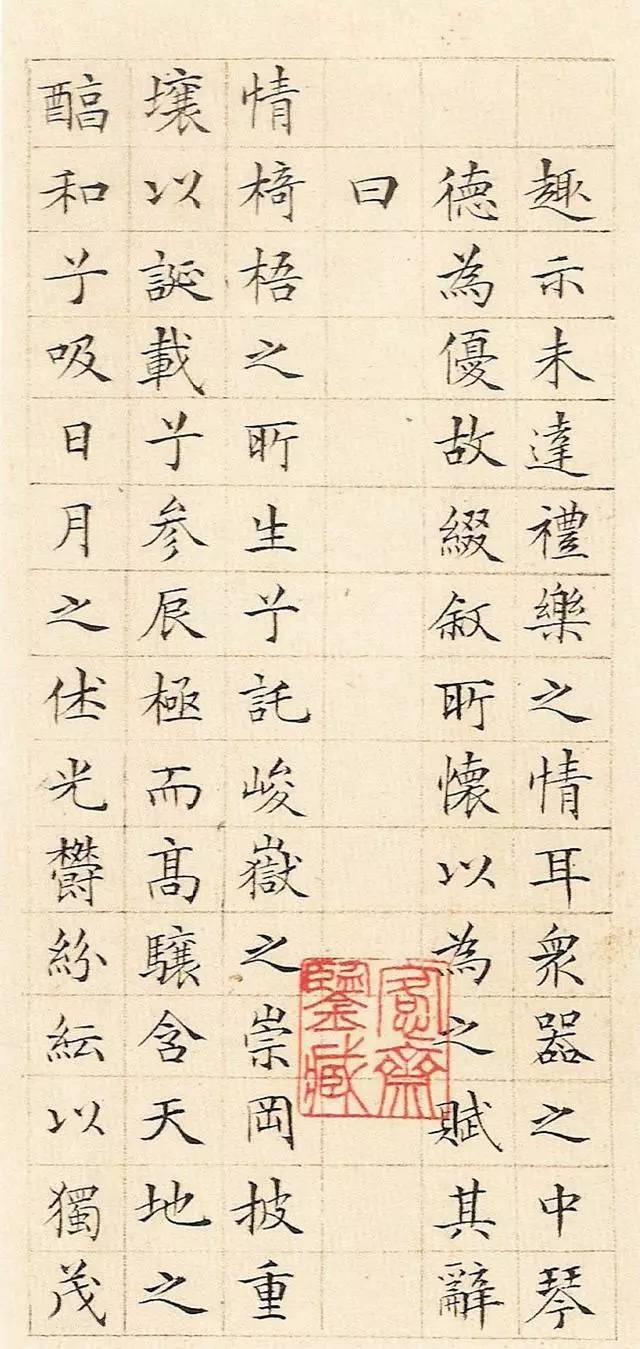 趣示未達禮樂之情耳衆器之中琴
德為優故綴叙所懷以為之賦其辭
曰
情椅梧之所生兮託峻嶽之崇岡披重
壤以誕載兮参辰極而髙驤含天地之
醕和兮吸日月之休光欝紛紜以獨茂
愙齋鑒藏